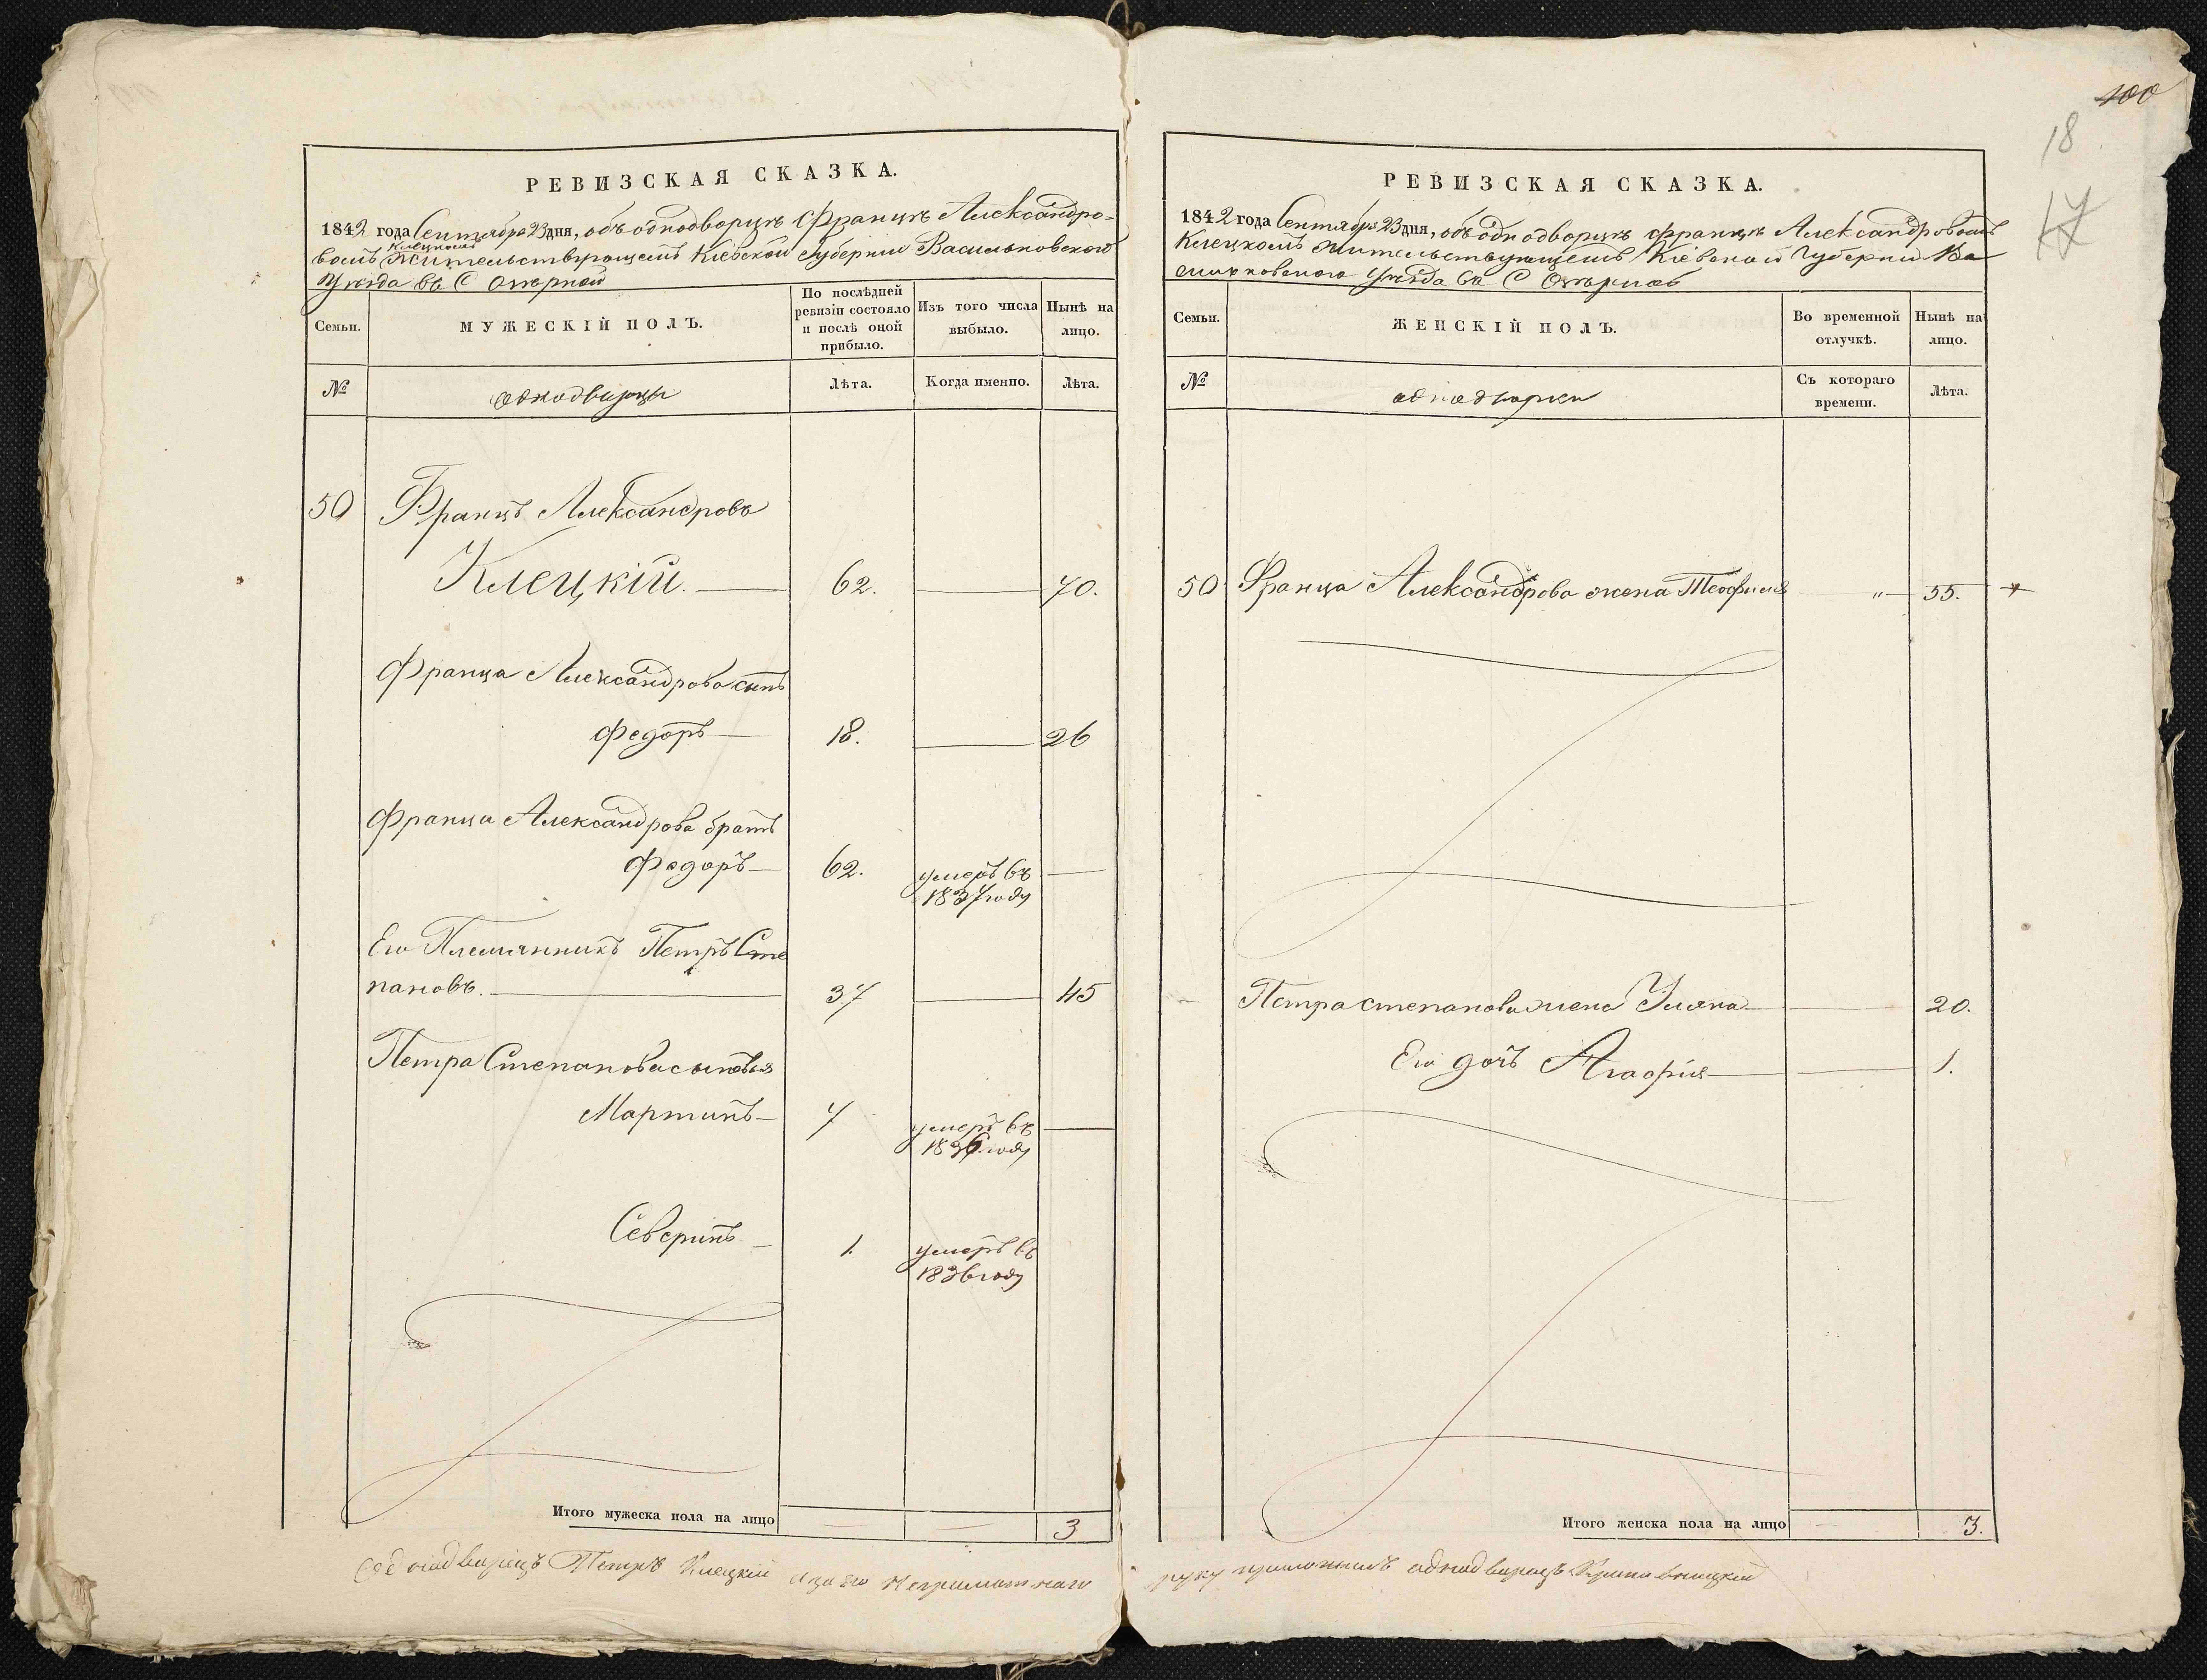 100
18
17
РЕВИЗСКАЯ СКАЗКА.
1842 года Сентября 23 дня, объ однодворцѣ Францѣ Александро-
вомъ Клецкомъ Жительствующемъ Кіевской Губерніи Васильковскаго
Уѣзда въ С Озѣрной
Семьи.
МУЖЕСКІЙ ПОЛЪ.
По послѣдней ревизіи состояло и послѣ оной прибыло.
Изъ того числа выбыло.
Нынѣ на лицо.
№
однодворцы
Лѣта.
Когда именно.
Лѣта.
50 Францъ Александровъ
Клецкій. 62. 70.
Франца Александрова сынъ
Федоръ 18. 26
Франца Александрова братъ
Федоръ 62. умеръ въ
1837 году
Его Племянникъ Петръ Сте
пановъ. 37 45
Петра Степанова сыновья
Мартинъ 7 умеръ въ
1836 году
Северинъ 1. умеръ въ
1836 году
Итого мужеска пола на лицо 3
Однодворецъ Петръ Клецкій а за его неграмотнаго
РЕВИЗСКАЯ СКАЗКА.
1842 года Сентября 23 дня, объ однодворцѣ Францѣ Александровомъ
Клецкомъ Жительствующемъ Кіевской Губерніи Ва
сильковского Уѣзда въ С Озѣрной
Семьи.
ЖЕНСКІЙ ПОЛЪ.
Во временной отлучкѣ.
Нынѣ на лицо.
№
однодворки
Съ котораго времени.
Лѣта.
50 Франца Александрова жена Теофилия " 55.
Петра Степанова жена Уляна 20.
Его дочь Агафія 1.
Итого женска пола на лицо 3.
руку приложилъ однодворецъ